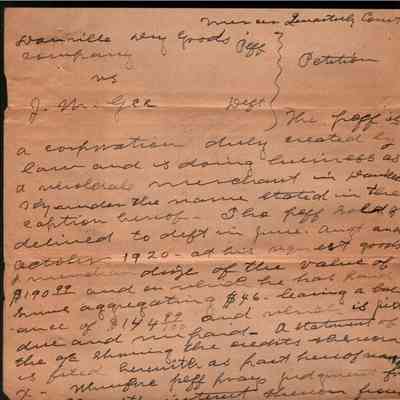 Mercer Quarterly Court
Danville Dry Goods
Company Plff
vs Petition
J. M. Gee Deft
The plff is
a corporation duly created by
law and is doing business as
a wholesale merchant in Danville
Ky under the name stated in the
caption hereof. The plff sold &
delivered to deft in June. and
October 1920 - at his request goods
of the value of
$190.99 and on which he has paid
sums aggregating $46 - leaving a bal
ance of $144 and which is just
due and unpaid - A statement of
the a/c showing the credits thereon
is filed herewith as part hereof
Wherefore plff prays judgment for
interest thereon from